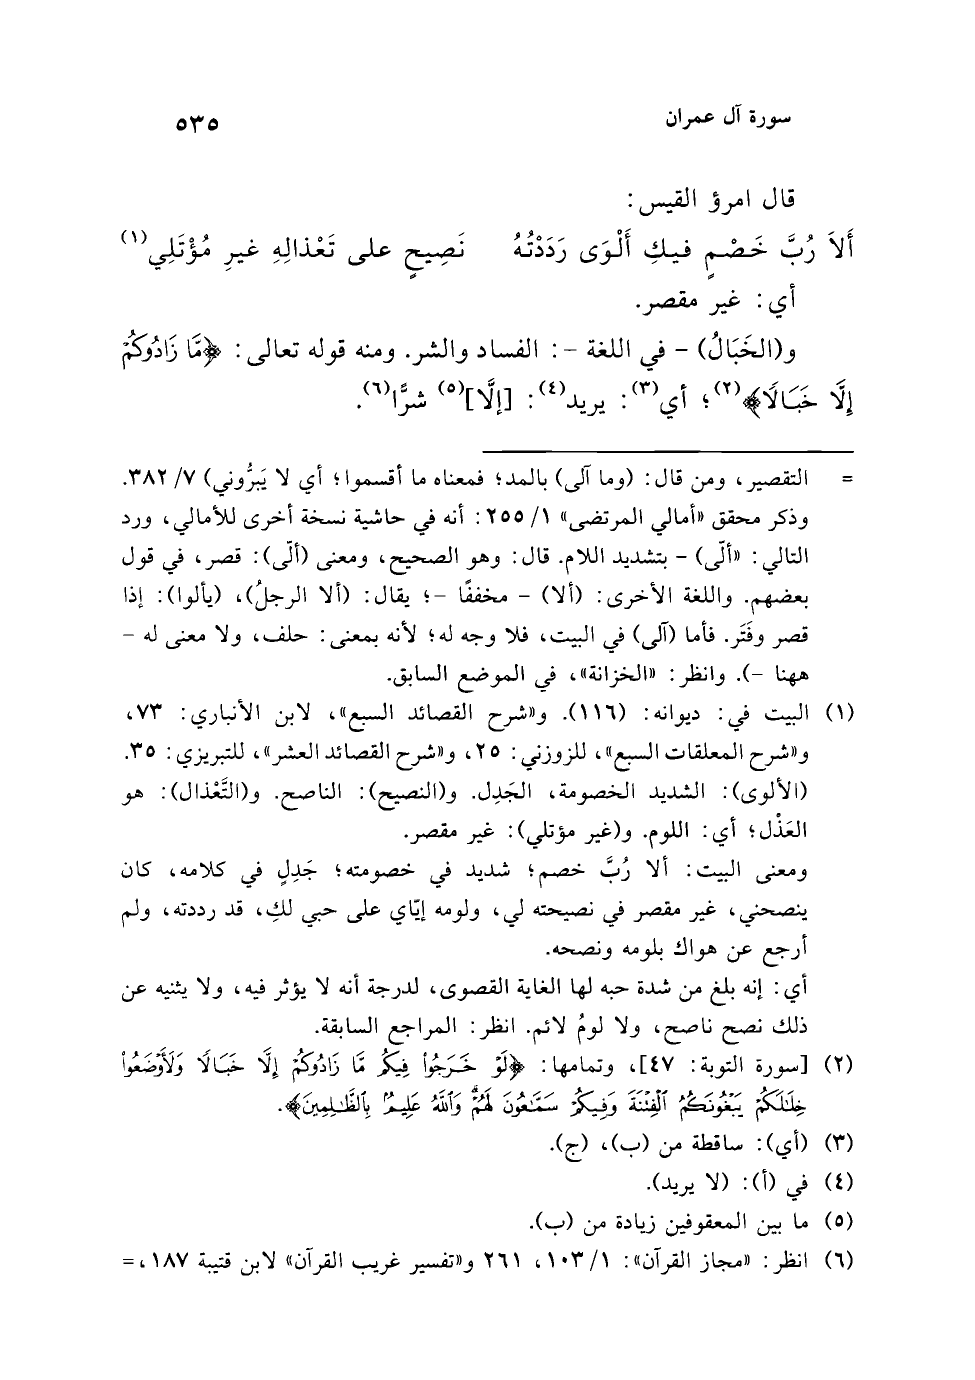 سورة آل عمران ٥٣٥
قال امرؤ القيس:
أَلاَ رُبَّ خَصْمٍ فيكِ أَلْوَى رَدَدْتُهُ نَصِيحٍ على تَعْذالِهِ غيرِ مُؤْتَلِي(١)
أي: غير مقصر.
و(الخَبَالُ) - في اللغة -: الفساد والشر. ومنه قوله تعالى: ﴿مَّا زَادُوكُمْ
إِلَّا خَبَالًا﴾(٢)؛ أي(٣): يريد(٤): [إلَّا](٥) شرًّا(٦).
= التقصير، ومن قال: (وما آلى) بالمد؛ فمعناه ما أقسموا؛ أي لا يَبرُّوني) ٧/ ٣٨٢.
وذكر محقق «أمالي المرتضى» ١/ ٢٥٥: أنه في حاشية نسخة أخرى للأمالي، ورد
التالي: «ألّى) - بتشديد اللام. قال: وهو الصحيح، ومعنى (ألّى): قصر، في قول
بعضهم. واللغة الأخرى: (ألا) - مخففًا -؛ يقال: (ألا الرجلُ)، (يألوا): إذا
قصر وفَتَر. فأما (آلى) في البيت، فلا وجه له؛ لأنه بمعنى: حلف، ولا معنى له -
ههنا -). وانظر: «الخزانة»، في الموضع السابق.
(١) البيت في: ديوانه: (١١٦). و«شرح القصائد السبع»، لابن الأنباري: ٧٣،
و«شرح المعلقات السبع»، للزوزني: ٢٥، و«شرح القصائد العشر»، للتبريزي: ٣٥.
(الألوى): الشديد الخصومة، الجَدِل. و(النصيح): الناصح. و(التَّعْذال): هو
العَذْل؛ أي: اللوم. و(غير مؤتلي): غير مقصر.
ومعنى البيت: ألا رُبَّ خصم؛ شديد في خصومته؛ جَدِلٍ في كلامه، كان
ينصحني، غير مقصر في نصيحته لي، ولومه إيّاي على حبي لكِ، قد رددته، ولم
أرجع عن هواك بلومه ونصحه.
أي: إنه بلغ من شدة حبه لها الغاية القصوى، لدرجة أنه لا يؤثر فيه، ولا يثنيه عن
ذلك نصح ناصح، ولا لومُ لائم. انظر: المراجع السابقة.
(٢) [سورة التوبة: ٤٧]، وتمامها: ﴿لَوْ خَرَجُوا۟ فِيكُم مَّا زَادُوكُمْ إِلَّا خَبَالًا وَلَأَوْضَعُوا۟
خِلَـٰلَكُمْ يَبْغُونَكُمُ ٱلْفِتْنَةَ وَفِيكُمْ سَمَّـٰعُونَ لَهُمْ ۗ وَٱللَّهُ عَلِيمٌۢ بِٱلظَّـٰلِمِينَ﴾.
(٣) (أي): ساقطة من (ب)، (ج).
(٤) في (أ): (لا يريد).
(٥) ما بين المعقوفين زيادة من (ب).
(٦) انظر: «مجاز القرآن»: ١/ ١٠٣، ٢٦١ و«تفسير غريب القرآن» لابن قتيبة ١٨٧، =